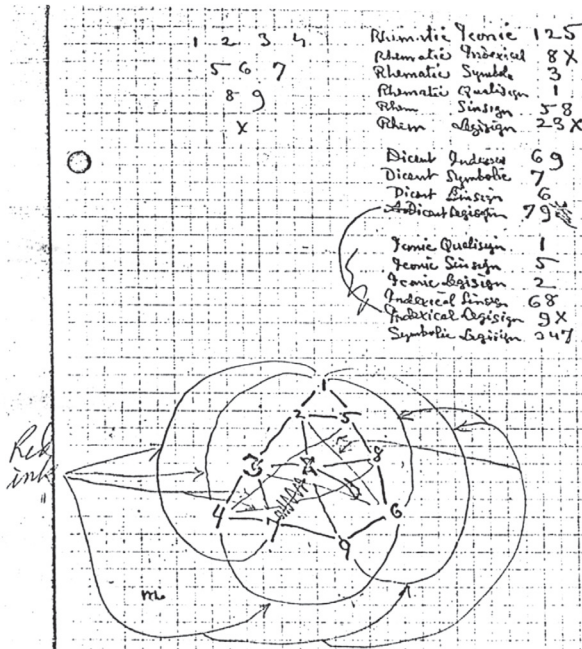 1 2 3 4
5 6 7
8 9
X
Rhematic Iconic 125
Rhematic Indexical 8X
Rhematic Symbols 3
Rhematic Qualisign 1
Rhem Sinsign 58
Rhem Legisign 23X
Dicent Indexes 69
Dicent Symbolic 7
Dicent Sinsign 6
Dicent Legisign 79
Iconic Qualisign 1
Iconic Sinsign 5
Iconic Legisign 2
Indexical Sinsign 68
Indexical Legisign 9X
Symbolic Legisign 347
1
2 5
3 8
4 6
9
Red
ink
m